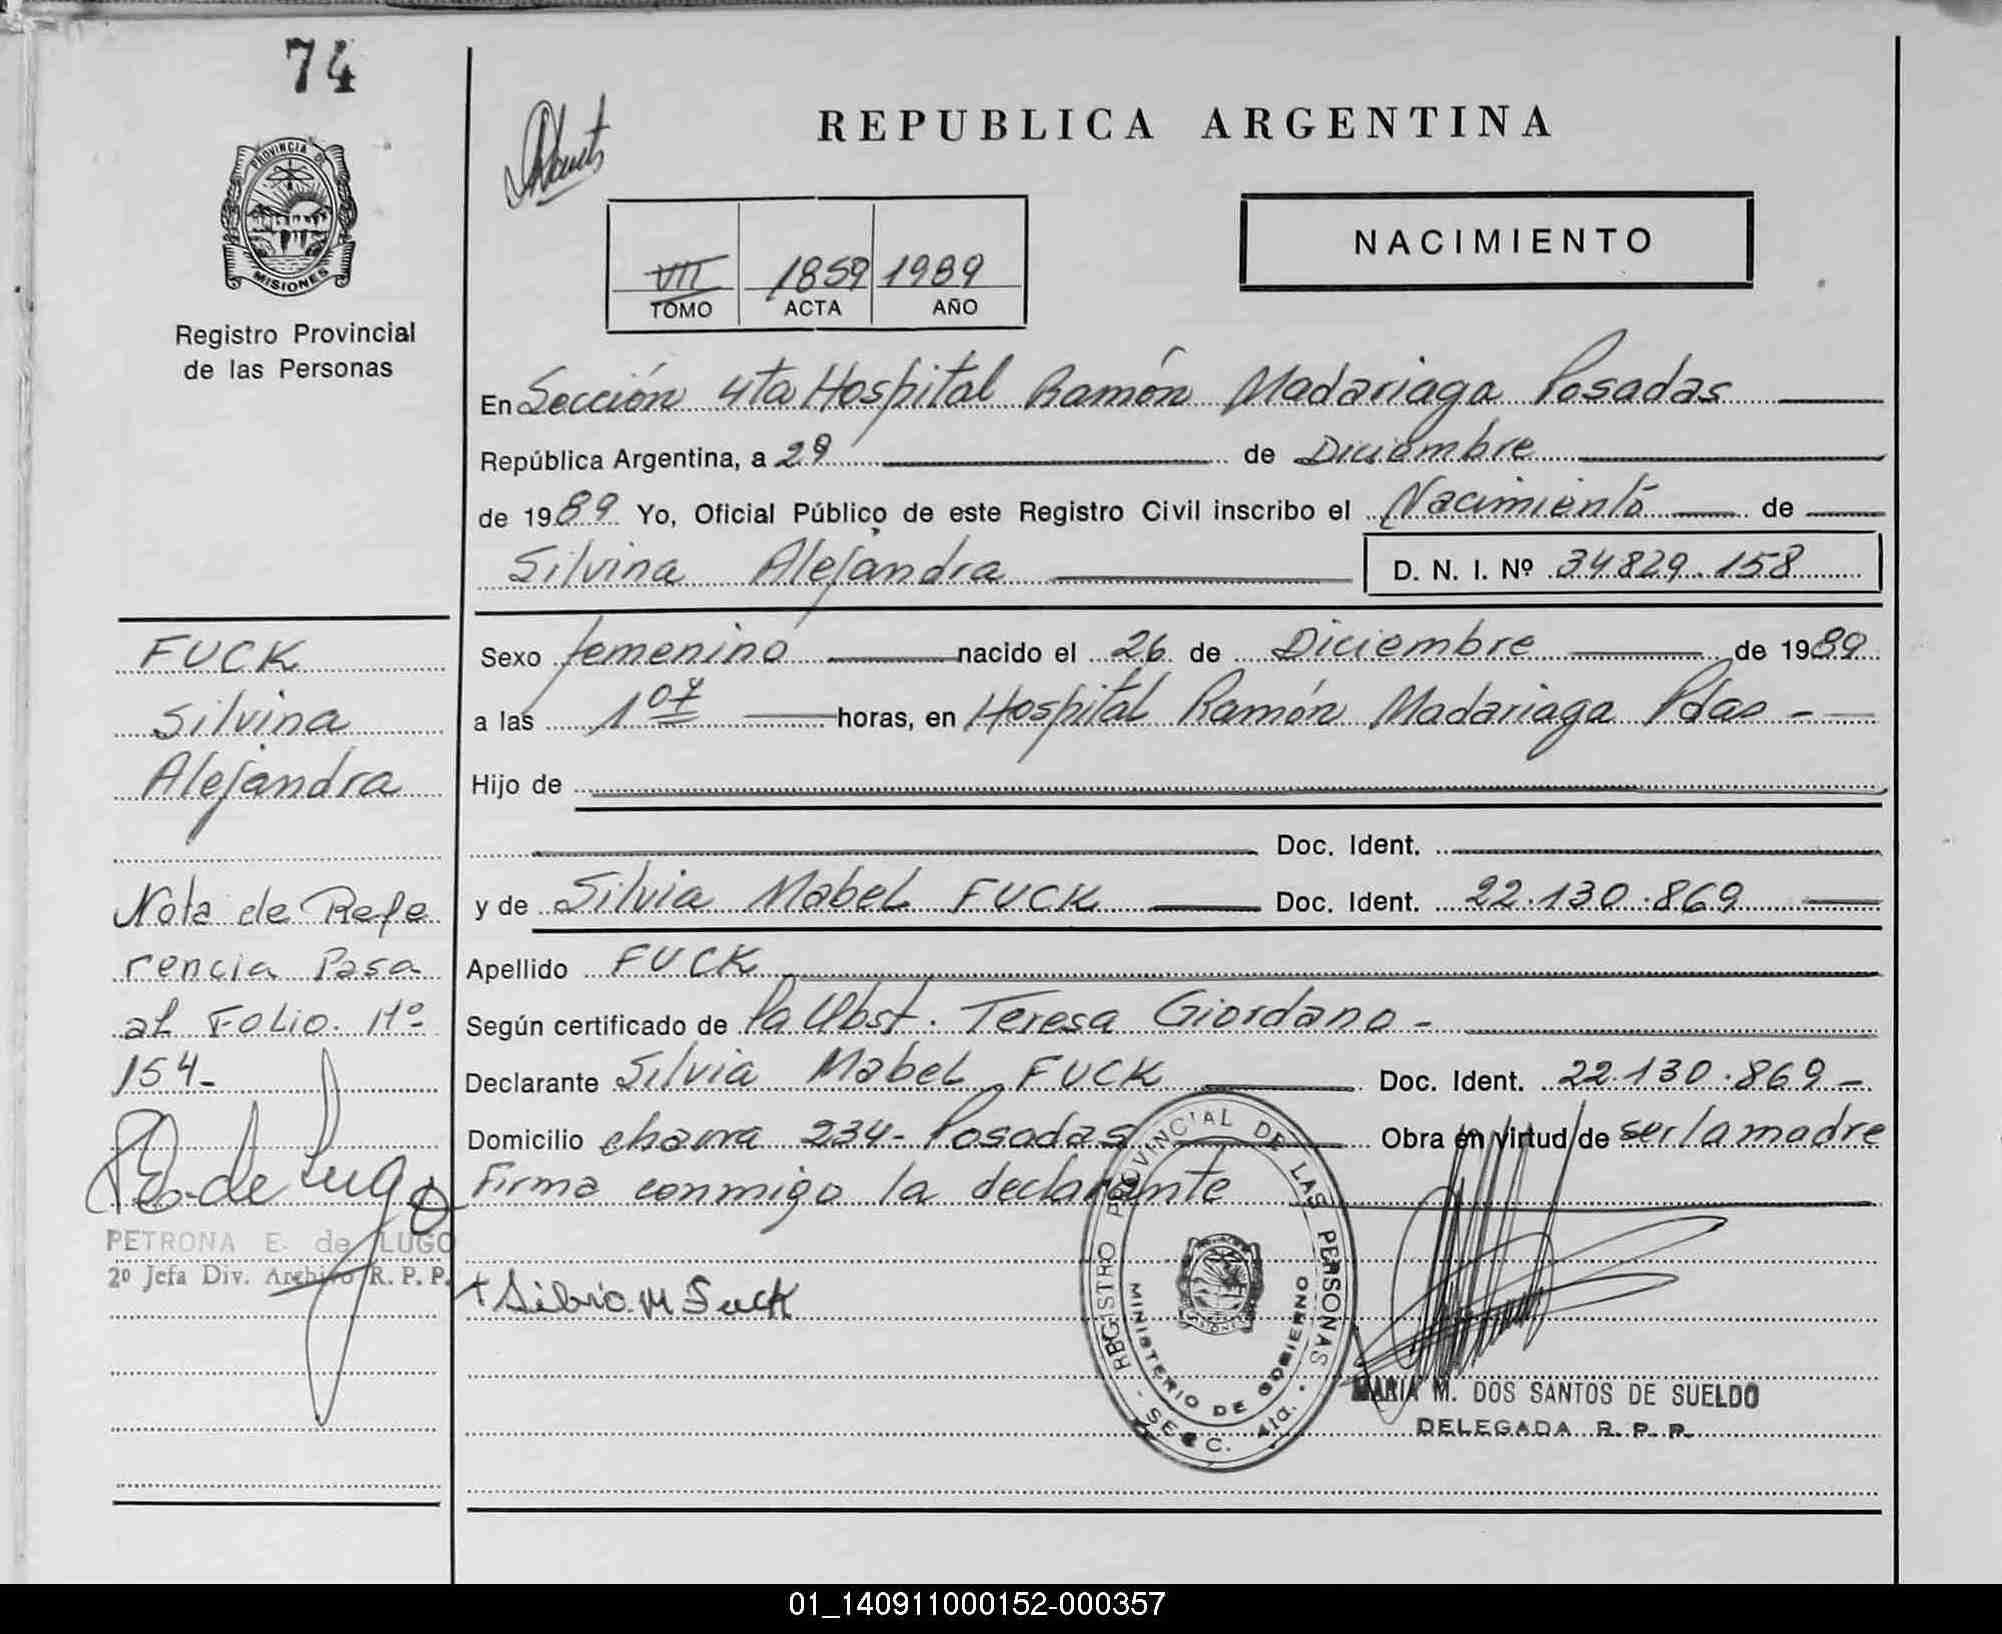 74
REPUBLICA ARGENTINA
PROVINCIA DE
MISIONES
Registro Provincial
de las Personas
NACIMIENTO
VII 1859 1989
TOMO ACTA AÑO
En Sección 4ta Hospital Ramón Madariaga Posadas
República Argentina, a 29 de Diciembre
de 1989 Yo, Oficial Público de este Registro Civil inscribo el Nacimiento de
Silvina Alejandra D. N. I. Nº 34829.158
FUCK
Silvina
Alejandra
Nota de Refe
rencia Pasa
al Folio. Nº
154-
Pe de Lugo
PETRONA E. de LUGO
2º Jefa Div. Archivo R. P. P.
Sexo femenino nacido el 26 de Diciembre de 1989
a las 1 07 horas, en Hospital Ramón Madariaga Pdas -
Hijo de
Doc. Ident.
y de Silvia Mabel FUCK Doc. Ident. 22.130.869
Apellido FUCK
Según certificado de La Obst. Teresa Giordano -
Declarante Silvia Mabel FUCK Doc. Ident. 22.130.869 -
Domicilio chacra 234- Posadas Obra en virtud de ser la madre
Firma conmigo la declarante
+ Silvia M Fuck
REGISTRO PROVINCIAL DE LAS PERSONAS
MINISTERIO DE GOBIERNO
- SECC. 4ta. -
MARIA M. DOS SANTOS DE SUELDO
DELEGADA R. P. P.
01_140911000152-000357